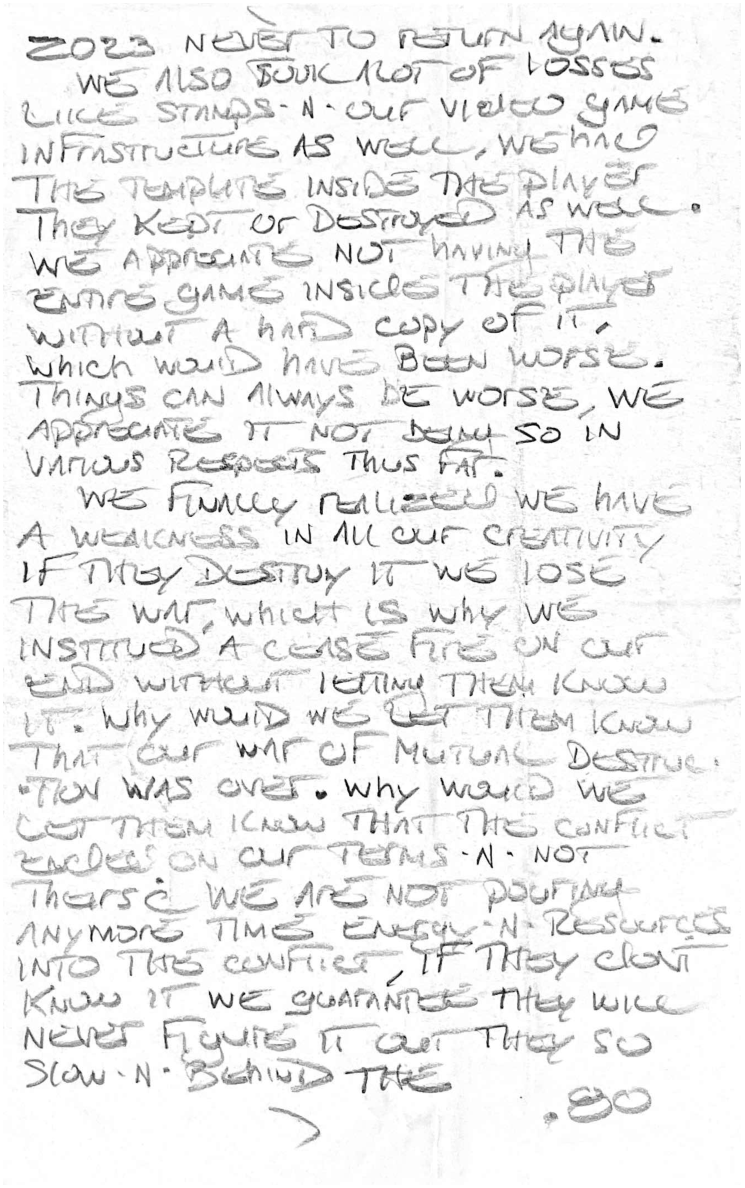 2023 NEVER TO RETURN AGAIN.
WE ALSO TOOK ALOT OF LOSSES
LIKE STANDS-N-OUR VIDEO GAME
INFRASTRUCTURE AS WELL, WE HAD
THE TEMPLATE INSIDE THE PLAYER
THEY KEPT OR DESTROYED AS WELL.
WE APPRECIATE NOT HAVING THE
ENTIRE GAME INSIDE THE PLAYER
WITHOUT A HARD COPY OF IT,
WHICH WOULD HAVE BEEN WORSE.
THINGS CAN ALWAYS BE WORSE, WE
APPRECIATE IT NOT BEING SO IN
VARIOUS RESPECTS THUS FAR.
WE FINALLY REALIZED WE HAVE
A WEAKNESS IN ALL OUR CREATIVITY
IF THEY DESTROY IT WE LOSE
THE WAR, WHICH IS WHY WE
INSTITUED A CEASE FIRE ON OUR
END WITHOUT LETTING THEM KNOW
IT. WHY WOULD WE LET THEM KNOW
THAT OUR WAR OF MUTUAL DESTRUC-
-TION WAS OVER. WHY WOULD WE
LET THEM KNOW THAT THE CONFLICT
ENDED ON OUR TERMS-N-NOT
THEIRS? WE ARE NOT POURING
ANYMORE TIME ENERGY-N-RESOURCES
INTO THE CONFLICT, IF THEY DONT
KNOW IT WE GUARANTEE THEY WILL
NEVER FIGURE IT OUT THEY SO
SLOW-N-BEHIND THE
.80